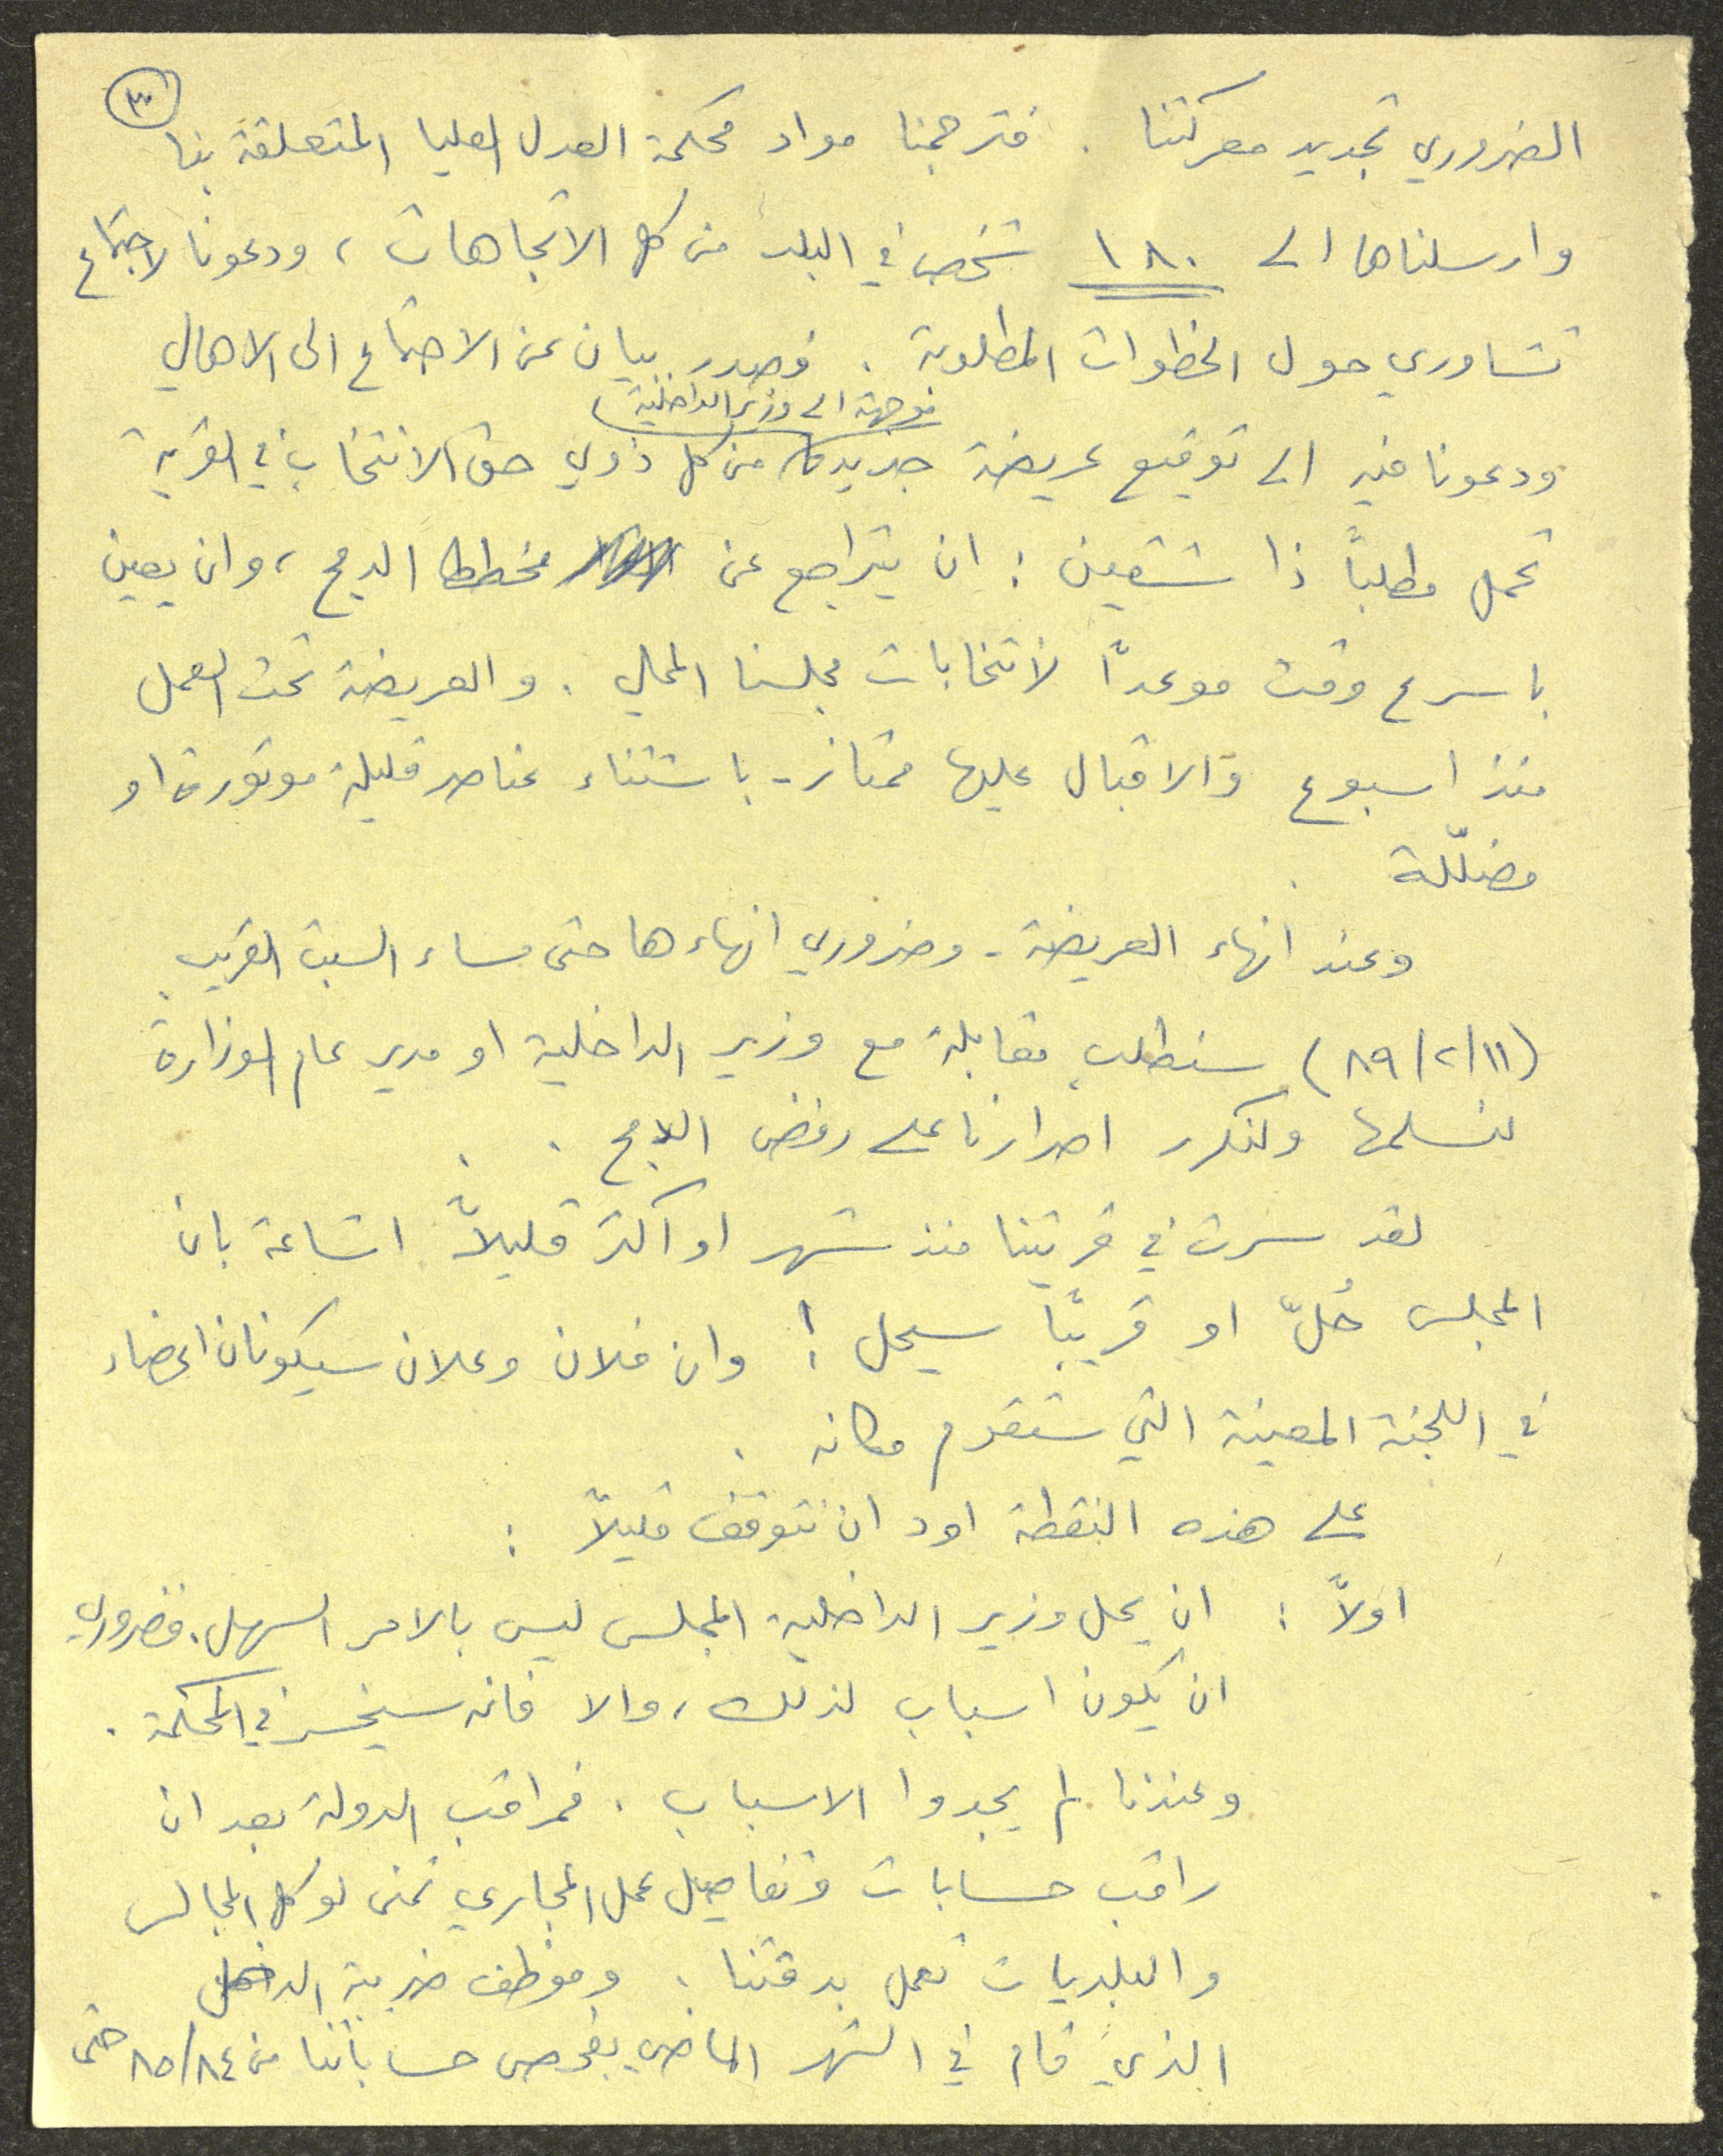 ٣
الضروري تجديد معركتنا . فترجمنا مواد محكمة العدل العليا المتعلقة بنا
وارسلناها الى ١٨٠ شخص في البلد من كل الاتجاهات ، ودعونا لاجتماع
تشاوري حول الخطوات المطلوبة . فصدر بيان عن الاجتماع الى الاهالي
موجهة الى وزير الداخلية
ودعونا فيه الى توقيع عريضة جديدة من كل ذوي حق الانتخاب في القرية
تحمل مطلباً ذا شقين : ان يتراجع عن مخطط الدمج ، وان يعين
باسرع وقت موعداً لانتخابات مجلسنا المحلي . والعريضة تحت العمل
منذ اسبوع والاقبال عليها ممتاز - باستثناء عناصر قليلة موتورة او
مضلّلة .
وعند انهاء العريضة - وضروري انهاءها حتى مساء السبت القريب
(٨٩/٢/١١) سنطلب مقابلة مع وزير الداخلية او مدير عام الوزارة
لنسلمها ولنكرر اصرارنا على رفض الدمج .
لقد سرت في قريتنا منذ شهر او اكثر قليلاً اشاعة بان
المجلس حُلّ او قريبًا سيحل ! وان فلان وعلان سيكونان اعضاء
في اللجنة المعينة التي ستقوم مكانه .
على هذه النقطة اود ان نتوقف قليلاً :
اولاً : ان يحل وزير الداخلية المجلس ليس بالامر السهل . فضروري
ان يكون اسباب لذلك ، والا فانه سيخسر في المحكمة .
وعندنا لم يجدوا الاسباب . فمراقب الدولة بعد ان
راقب حسابات وتفاصيل عمل المجاري تمنى لو كل المجالس
والبلديات تعمل بدقتنا . وموظف ضريبة الدخل
الذي قام في الشهر الماضي بفحص حساباتنا من ٨٥/٨٤ حتى